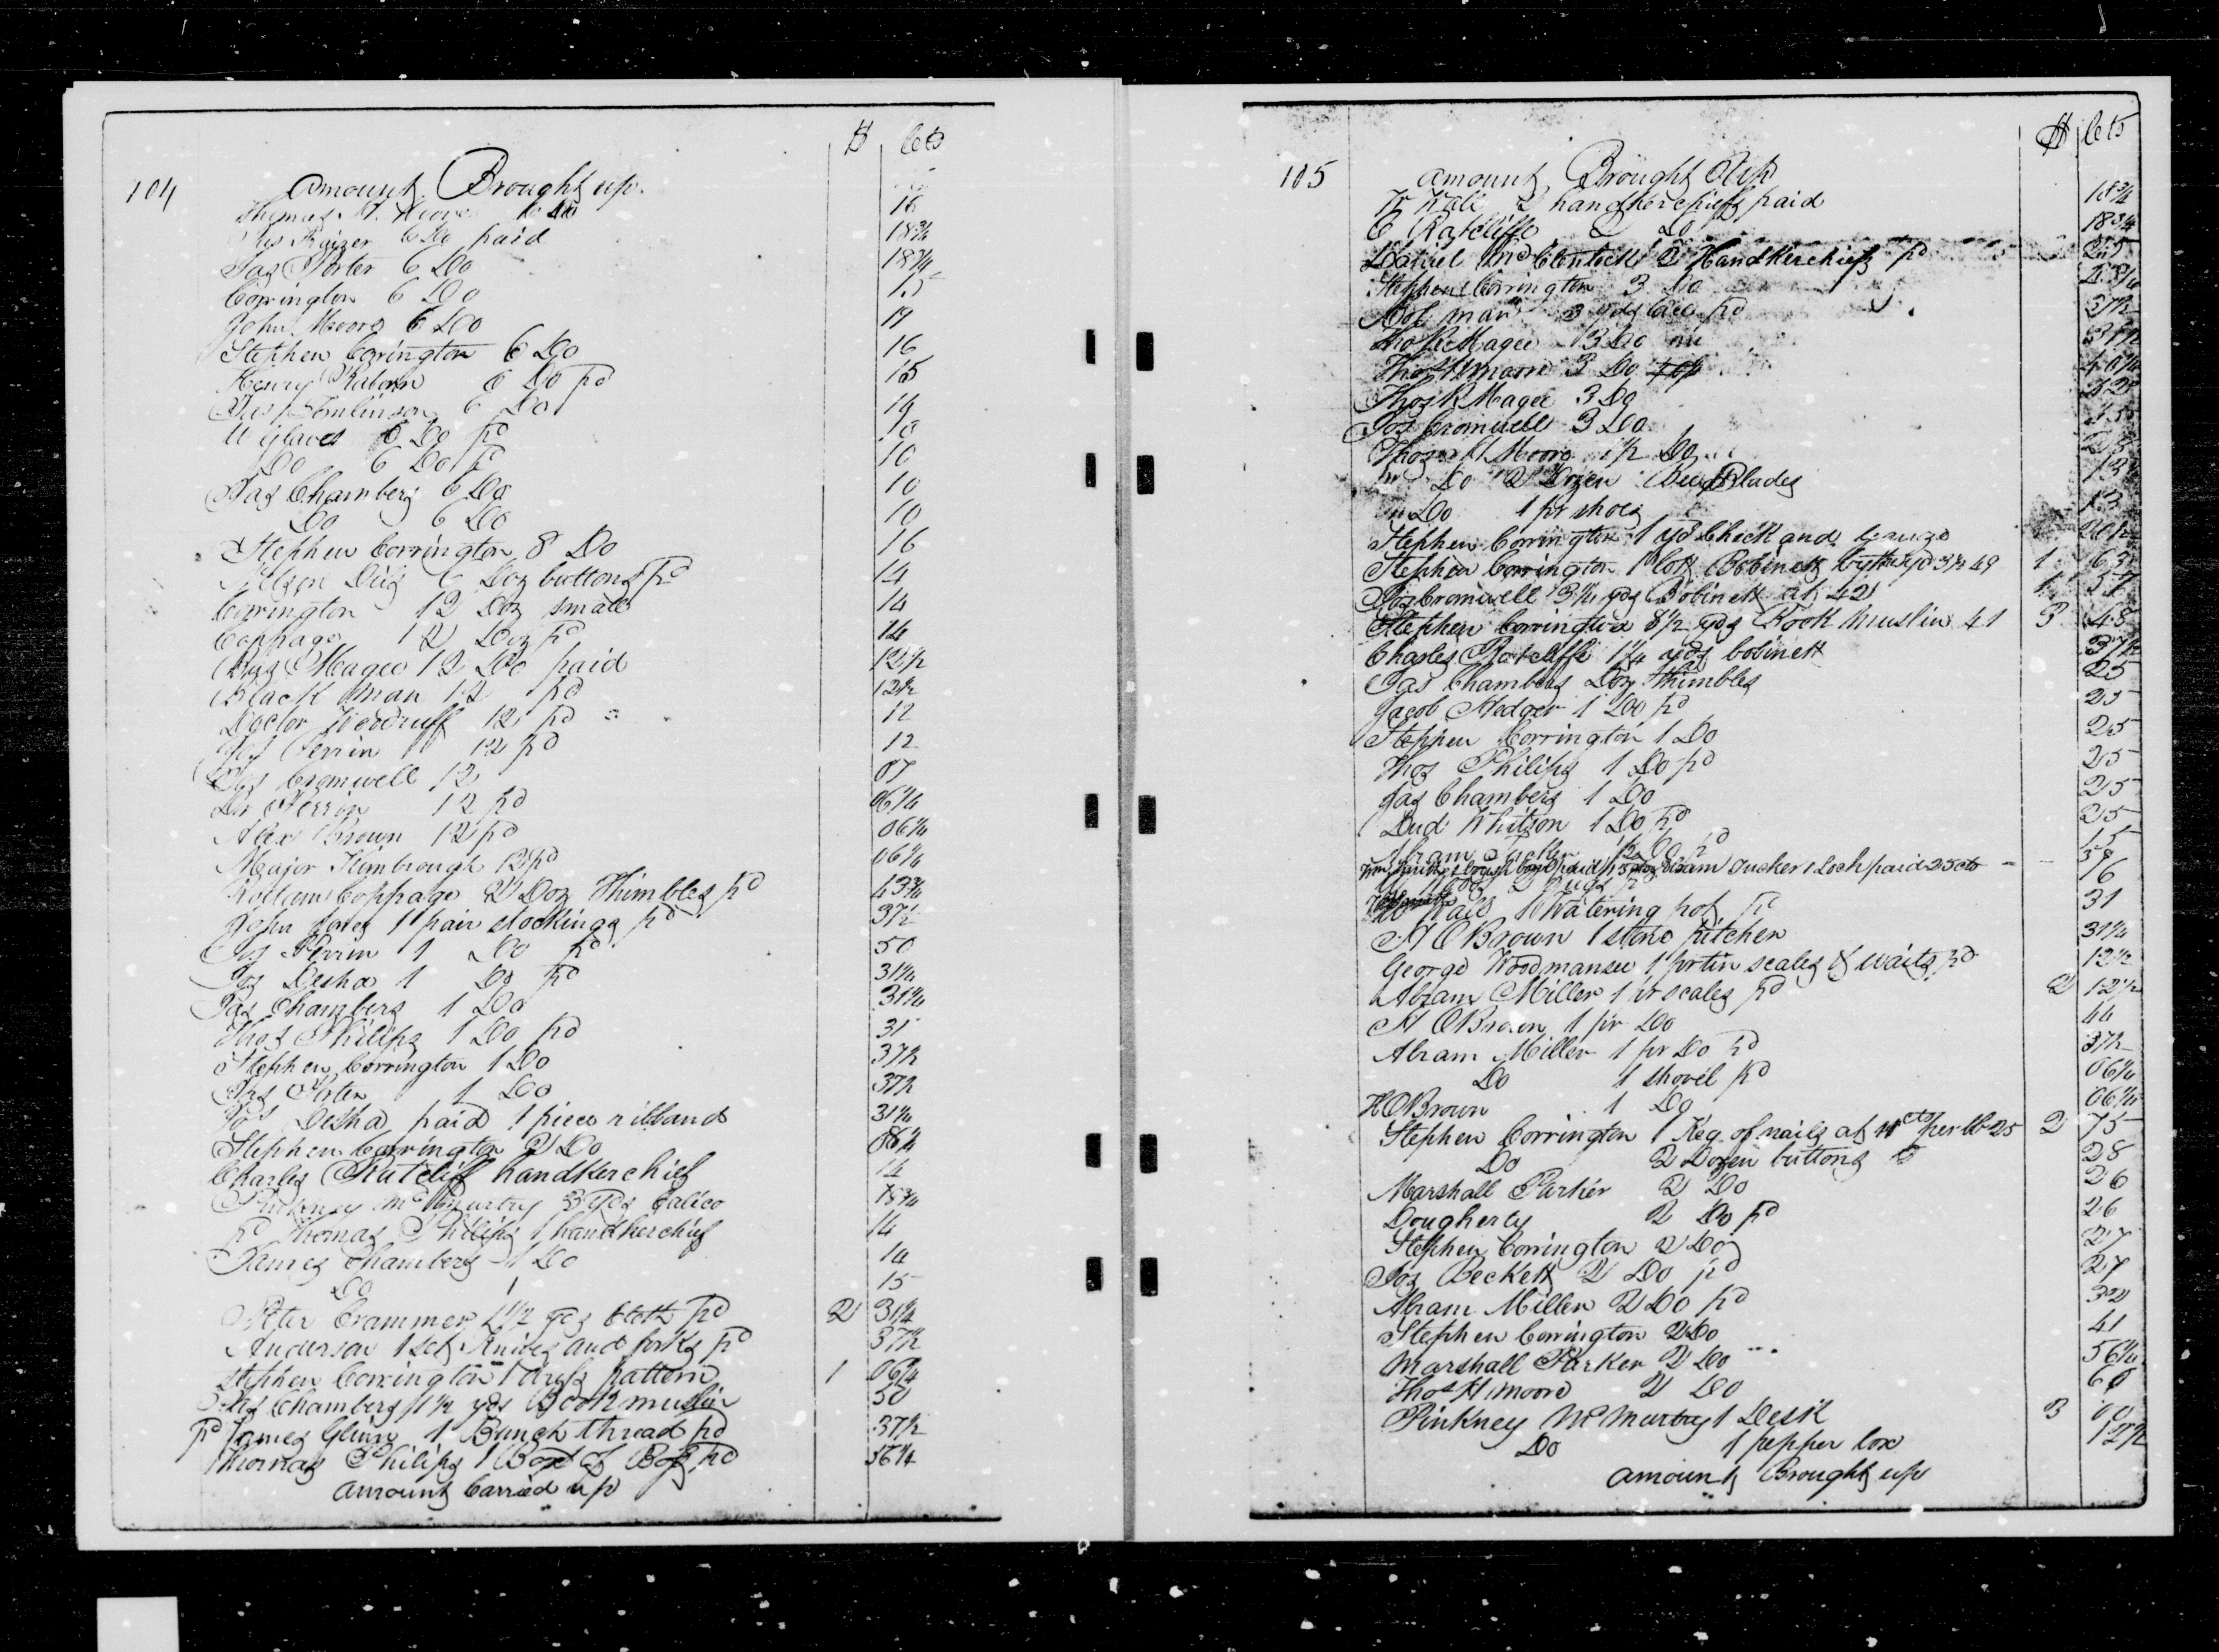 104
$ Cts
Amount Brought up.
Thomas H. Moore 6 Do 16
6 Do paid 18¾
Jas Porter 6 Do 18¾
Corrington 6 Do 15
John Moore 6 Do 19
Stephen Corrington 6 Do 16
Henry 6 Do pd 15
Jas Tomlinson 6 Do 14
W Glaves 6 Do pd 10
Do 6 Do pd 10
Jas Chambers 6 Do 10
Do 6 Do 10
Stephen Corrington 8 Do 16
6 Doz buttons pd 14
Corrington 12 Doz small 14
Coppage 12 Doz pd 14
Magee 12 Do paid 12½
Black man 12 pd 12½
Doctor Woodruff 12 pd 12
Jos Perrin 12 pd 12
Jos Cromwell 12 07
Dr Perrin 12 pd 06¼
Alex Brown 12 pd 06¼
Major Kimbrough 12 pd 06¼
Coppage 2 Doz Thimbles pd 43¾
John 1 pair stockings pd 37½
Jos Perrin 1 Do pd 50
Jos Desha 1 Do pd 31¼
Jas Chambers 1 Do 31¼
Thos Philips 1 Do pd 31
Stephen Corrington 1 Do 37½
Jas Porter 1 Do 37½
Jos Desha paid 1 piece ribband 31¼
Stephen Corrington 2 Do
Charles Ratcliff handkerchief 14
Pinkney McMurtry 3 yds Calico 18¾
pd Thomas Philips 1 handkerchief 14
James Chambers 1 Do 14
Do 1 15
Peter Crammer 1½ yds Cloth pd 2 31¼
Anderson 1 Set Knives and forks pd 37½
Stephen Corrington 1 dress pattern 1 06¼
Jas Chambers 1½ yds Book muslin 50
pd James Glinn 1 Bunch thread pd 37½
Thomas Philips 1 Box of pd 56¼
Amount Carried up
105
$ Cts
Amount Brought Up
W Wall 2 handkerchiefs paid 18¾
C Ratcliffe 2 Do 18¾
McClintick 2 Handkerchiefs pd 25
Stephen Corrington 3 Do
man 3 yds lace pd 37½
Magee 3 Do 37½
Thos H moore 3 Do
Thos R Magee 3 Do
Jos Cromwell 3 Do
Thos H Moore 1½ Do
Do 2 Dozen Blades
Do 1 pr shoes 13
Stephen Corrington 1 yd Check and gauze
Stephen Corrington 1 lott Bobinett by the yd 3¼ 49 1 63
Jos Cromwell 3¼ yds Bobinett at 42 1 37
Stephen Corrington 8½ yds Book Muslin 41 3 48
Charles Ratcliffe 1¼ yds bobinett 37½
Jas Chambers Doz Thimbles 25
Jacob Hedger 1 Do pd 25
Stephen Corrington 1 Do 25
Thos Philips 1 Do pd 25
Jas Chambers 1 Do 25
Dud Whitson 1 Do pd 25
Abram pd 15
Abram Tucker 1 Lock paid 25 cts
Wall 1 Watering pot pd 31
H O Brown 1 stone pitcher 31¼
George Woodmansee 1 pr tin scales & waits pd 12½
Abram Miller 1 pr scales pd 2 12½
H O Brown 1 pr Do 44
Abram Miller 1 pr Do pd 37½
Do 1 shovel pd 06¼
H O Brown 1 Do 06¼
Stephen Corrington 1 Keg of nails at 11 cts per lb 25 2 75
Do 2 Dozen buttons 28
Marshall Parker 2 Do 26
Dougherty 2 Do pd 26
Stephen Corrington 2 Do 27
Jos Beckett 2 Do pd 27
Abram Miller 2 Do pd 32
Stephen Corrington 2 Do 41
Marshall Parker 2 Do 56¼
Thos H moore 2 Do
Pinkney McMurtry 1 Desk 3 00
Do 1 pepper box 12½
Amount Brought up